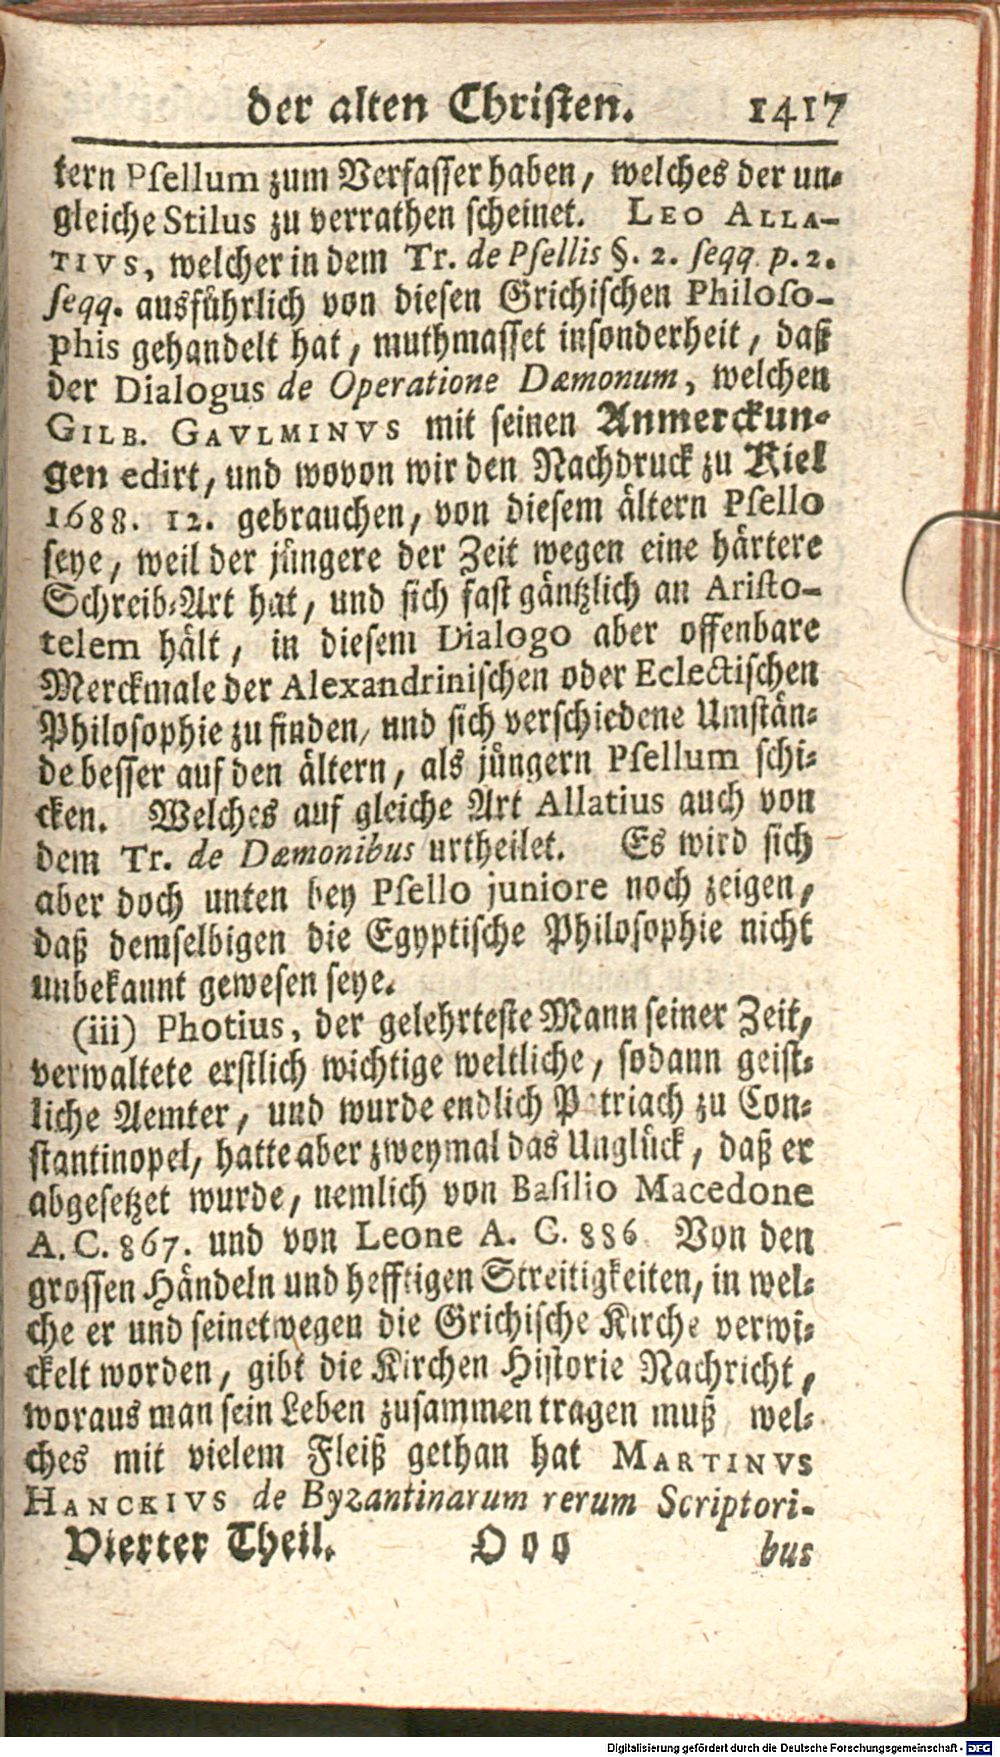 der alten Christen. 1417
tern Psellum zum Verfasser haben, welches der un-
gleiche Stilus zu verrathen scheinet. LEO ALLA-
TIVS, welcher in dem Tr. de Psellis §. 2. seqq. p. 2.
seqq. ausführlich von diesen Grichischen Philoso-
phis gehandelt hat, muthmasset insonderheit, daß
der Dialogus de Operatione Dæmonum, welchen
GILB. GAVLMINVS mit seinen Anmerckun-
gen edirt, und wovon wir den Nachdruck zu Kiel
1688. 12. gebrauchen, von diesem ältern Psello
seye, weil der jüngere der Zeit wegen eine härtere
Schreib-Art hat, und sich fast gäntzlich an Aristo-
telem hält, in diesem Dialogo aber offenbare
Merckmale der Alexandrinischen oder Eclectischen
Philosophie zu finden, und sich verschiedene Umstän-
de besser auf den ältern, als jüngern Psellum schi-
cken. Welches auf gleiche Art Allatius auch von
dem Tr. de Dæmonibus urtheilet. Es wird sich
aber doch unten bey Psello juniore noch zeigen,
daß demselbigen die Egyptische Philosophie nicht
unbekannt gewesen seye.
(iii) Photius, der gelehrteste Mann seiner Zeit,
verwaltete erstlich wichtige weltliche, sodann geist-
liche Aemter, und wurde endlich Patriach zu Con-
stantinopel, hatte aber zweymal das Unglück, daß er
abgesetzet wurde, nemlich von Basilio Macedone
A. C. 867. und von Leone A. C. 886. Von den
grossen Händeln und hefftigen Streitigkeiten, in wel-
che er und seinetwegen die Grichische Kirche verwi-
ckelt worden, gibt die Kirchen Historie Nachricht,
woraus man sein Leben zusammen tragen muß wel-
ches mit vielem Fleiß gethan hat MARTINVS
HANCKIVS de Byzantinarum rerum Scriptori-
Vierter Theil. Ooo bus
Digitalisierung gefördert durch die Deutsche Forschungsgemeinschaft - DFG